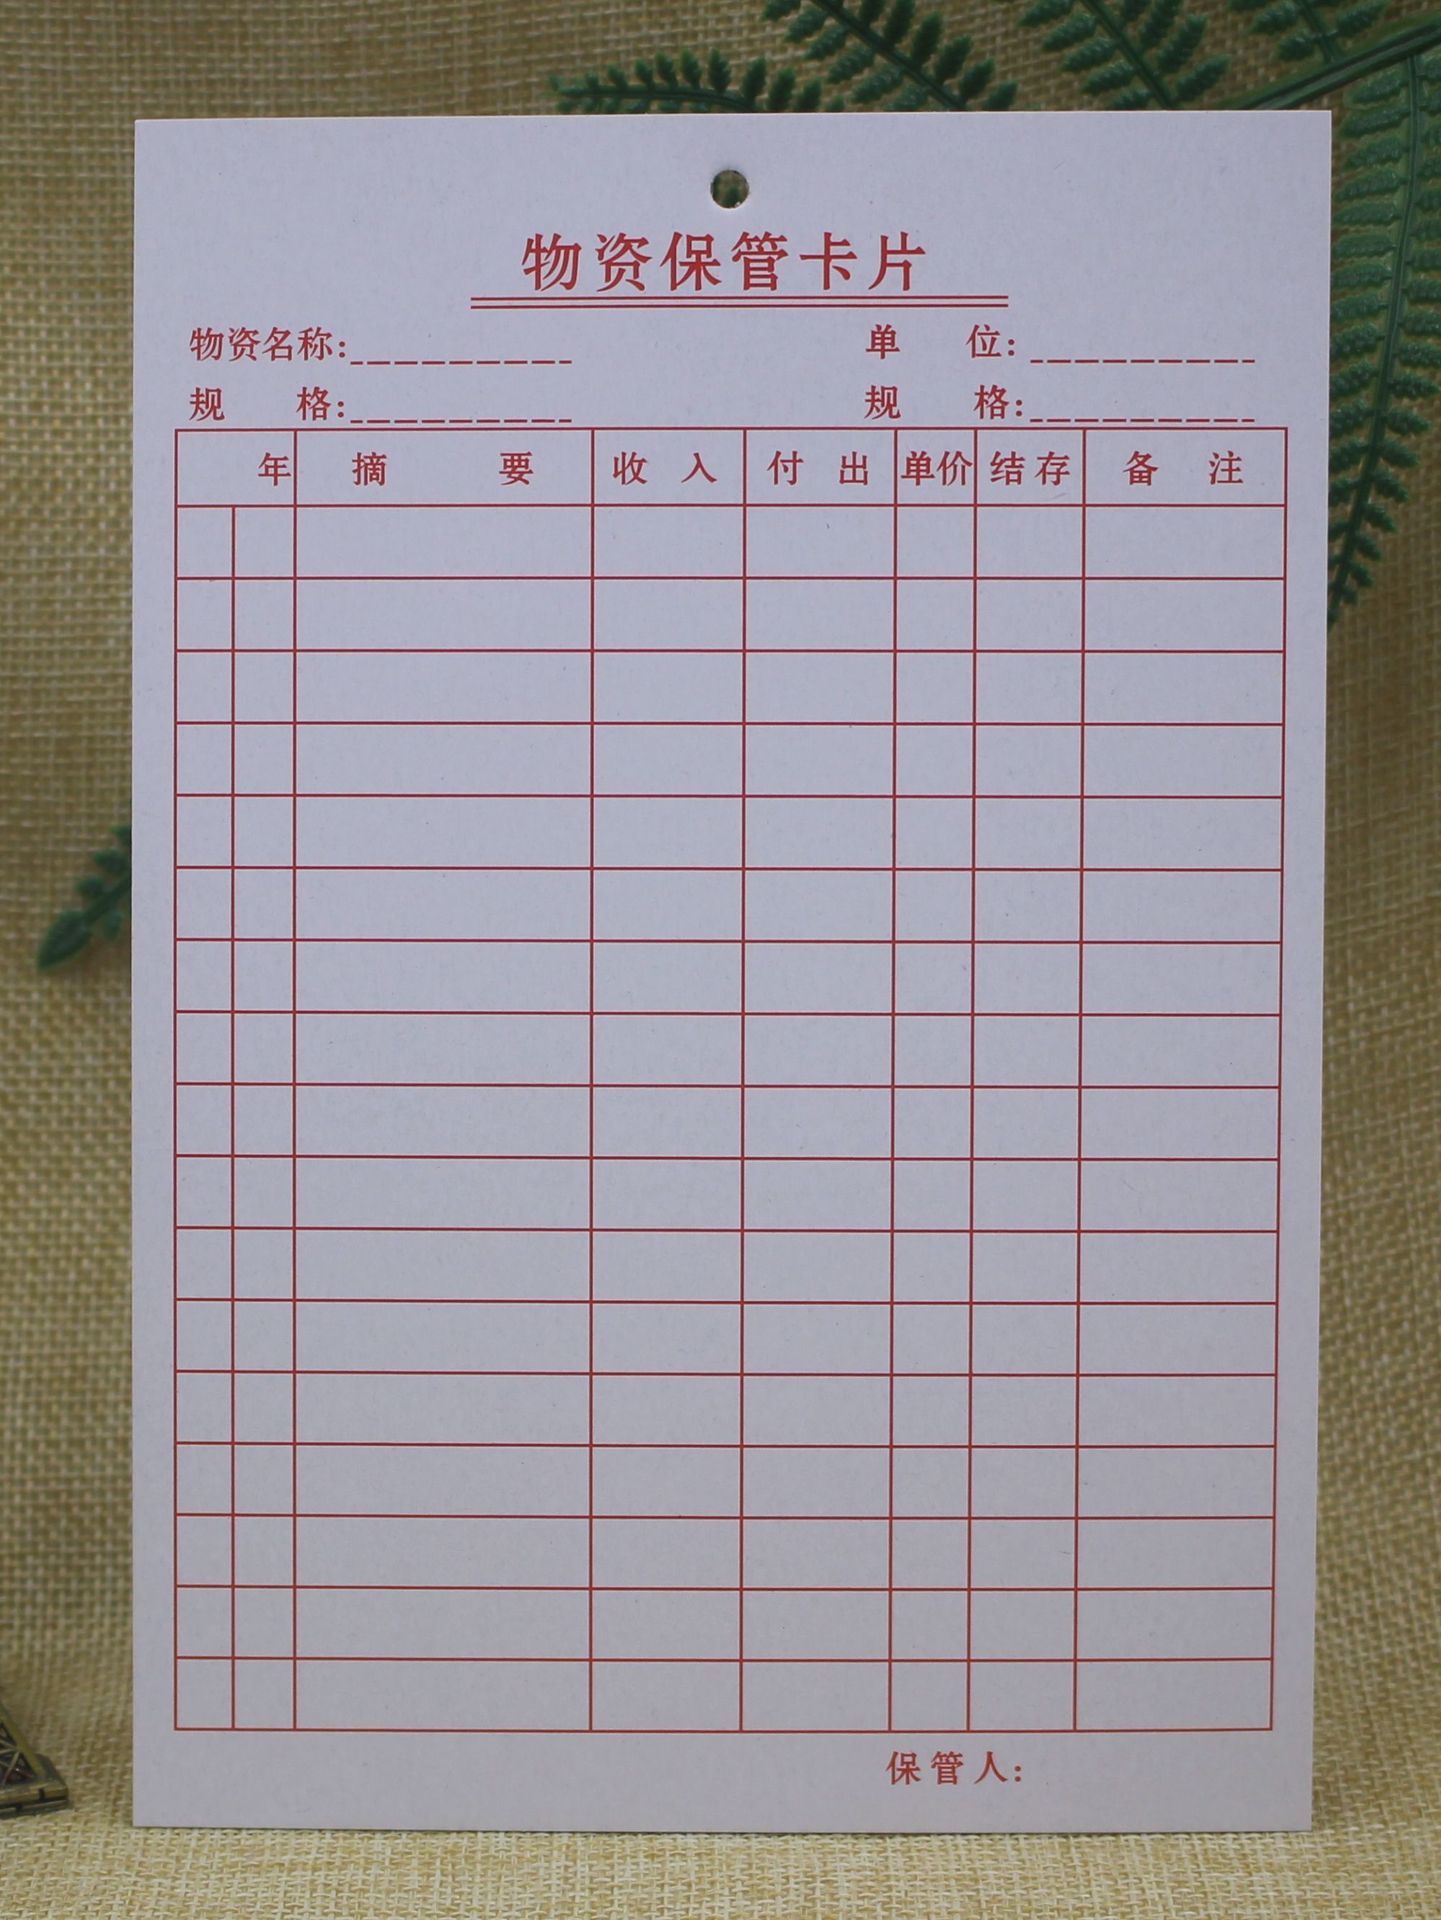 物资保管卡片
物资名称: 单 位:
规 格: 规 格:
年 摘 要 收 入 付 出 单价 结存 备 注
保管人: